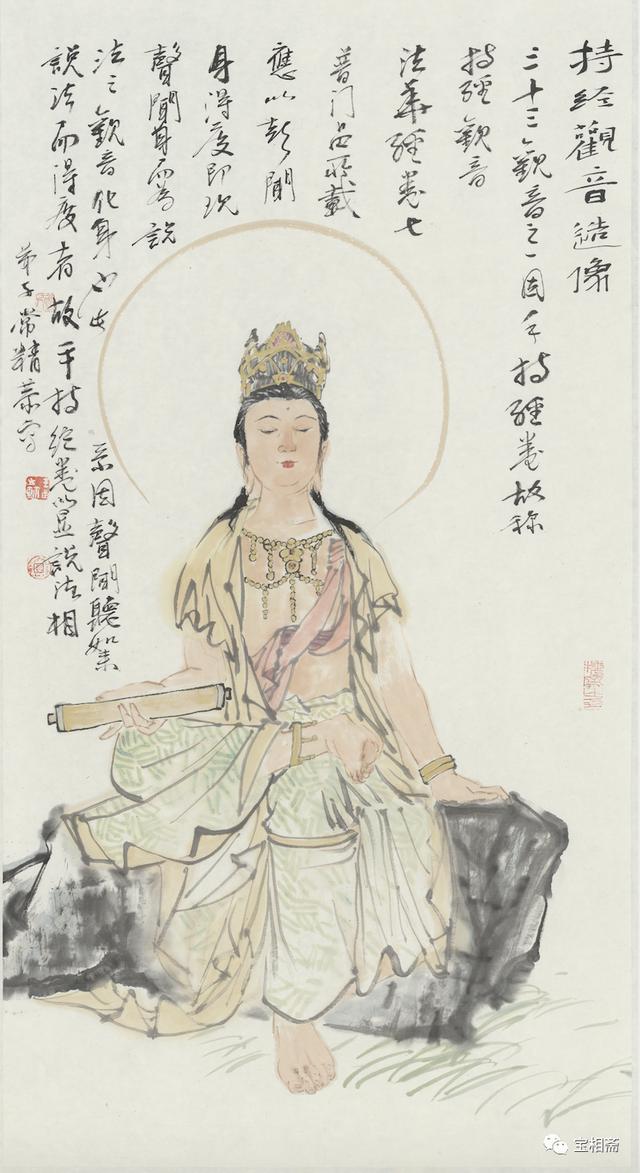 持经觀音造像
三十三觀音之一因手持經卷故称
持經觀音
法華經卷七
普门品所載
應以聞
身得度即现
聲聞身而為說
法之觀音化身也此
系因聲聞聽如来
說法而得度者故手持经卷以显說法相
弟子常精恭写
宝相斋